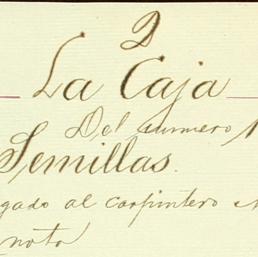 2
La Caja
Del numero 1
Semillas.
gado al carpintero
nota